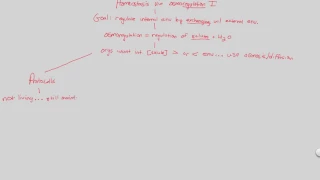 Homeostasis osmoregulation I
Goal: regulate internal env by exchanging w/ external env.
osmoregulation = regulation of solutes + H2O
orgs want int [solute] > or < env... use osmosis/diffusion
Protocells
not living... still maint.